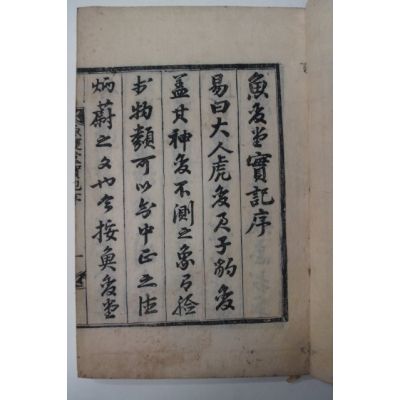 魚變堂實記序
易曰大人虎變君子豹變
蓋其神變不測之象可驗
於物類可以知中正之德
炳蔚之文也今按魚變堂
魚變堂實記序
一